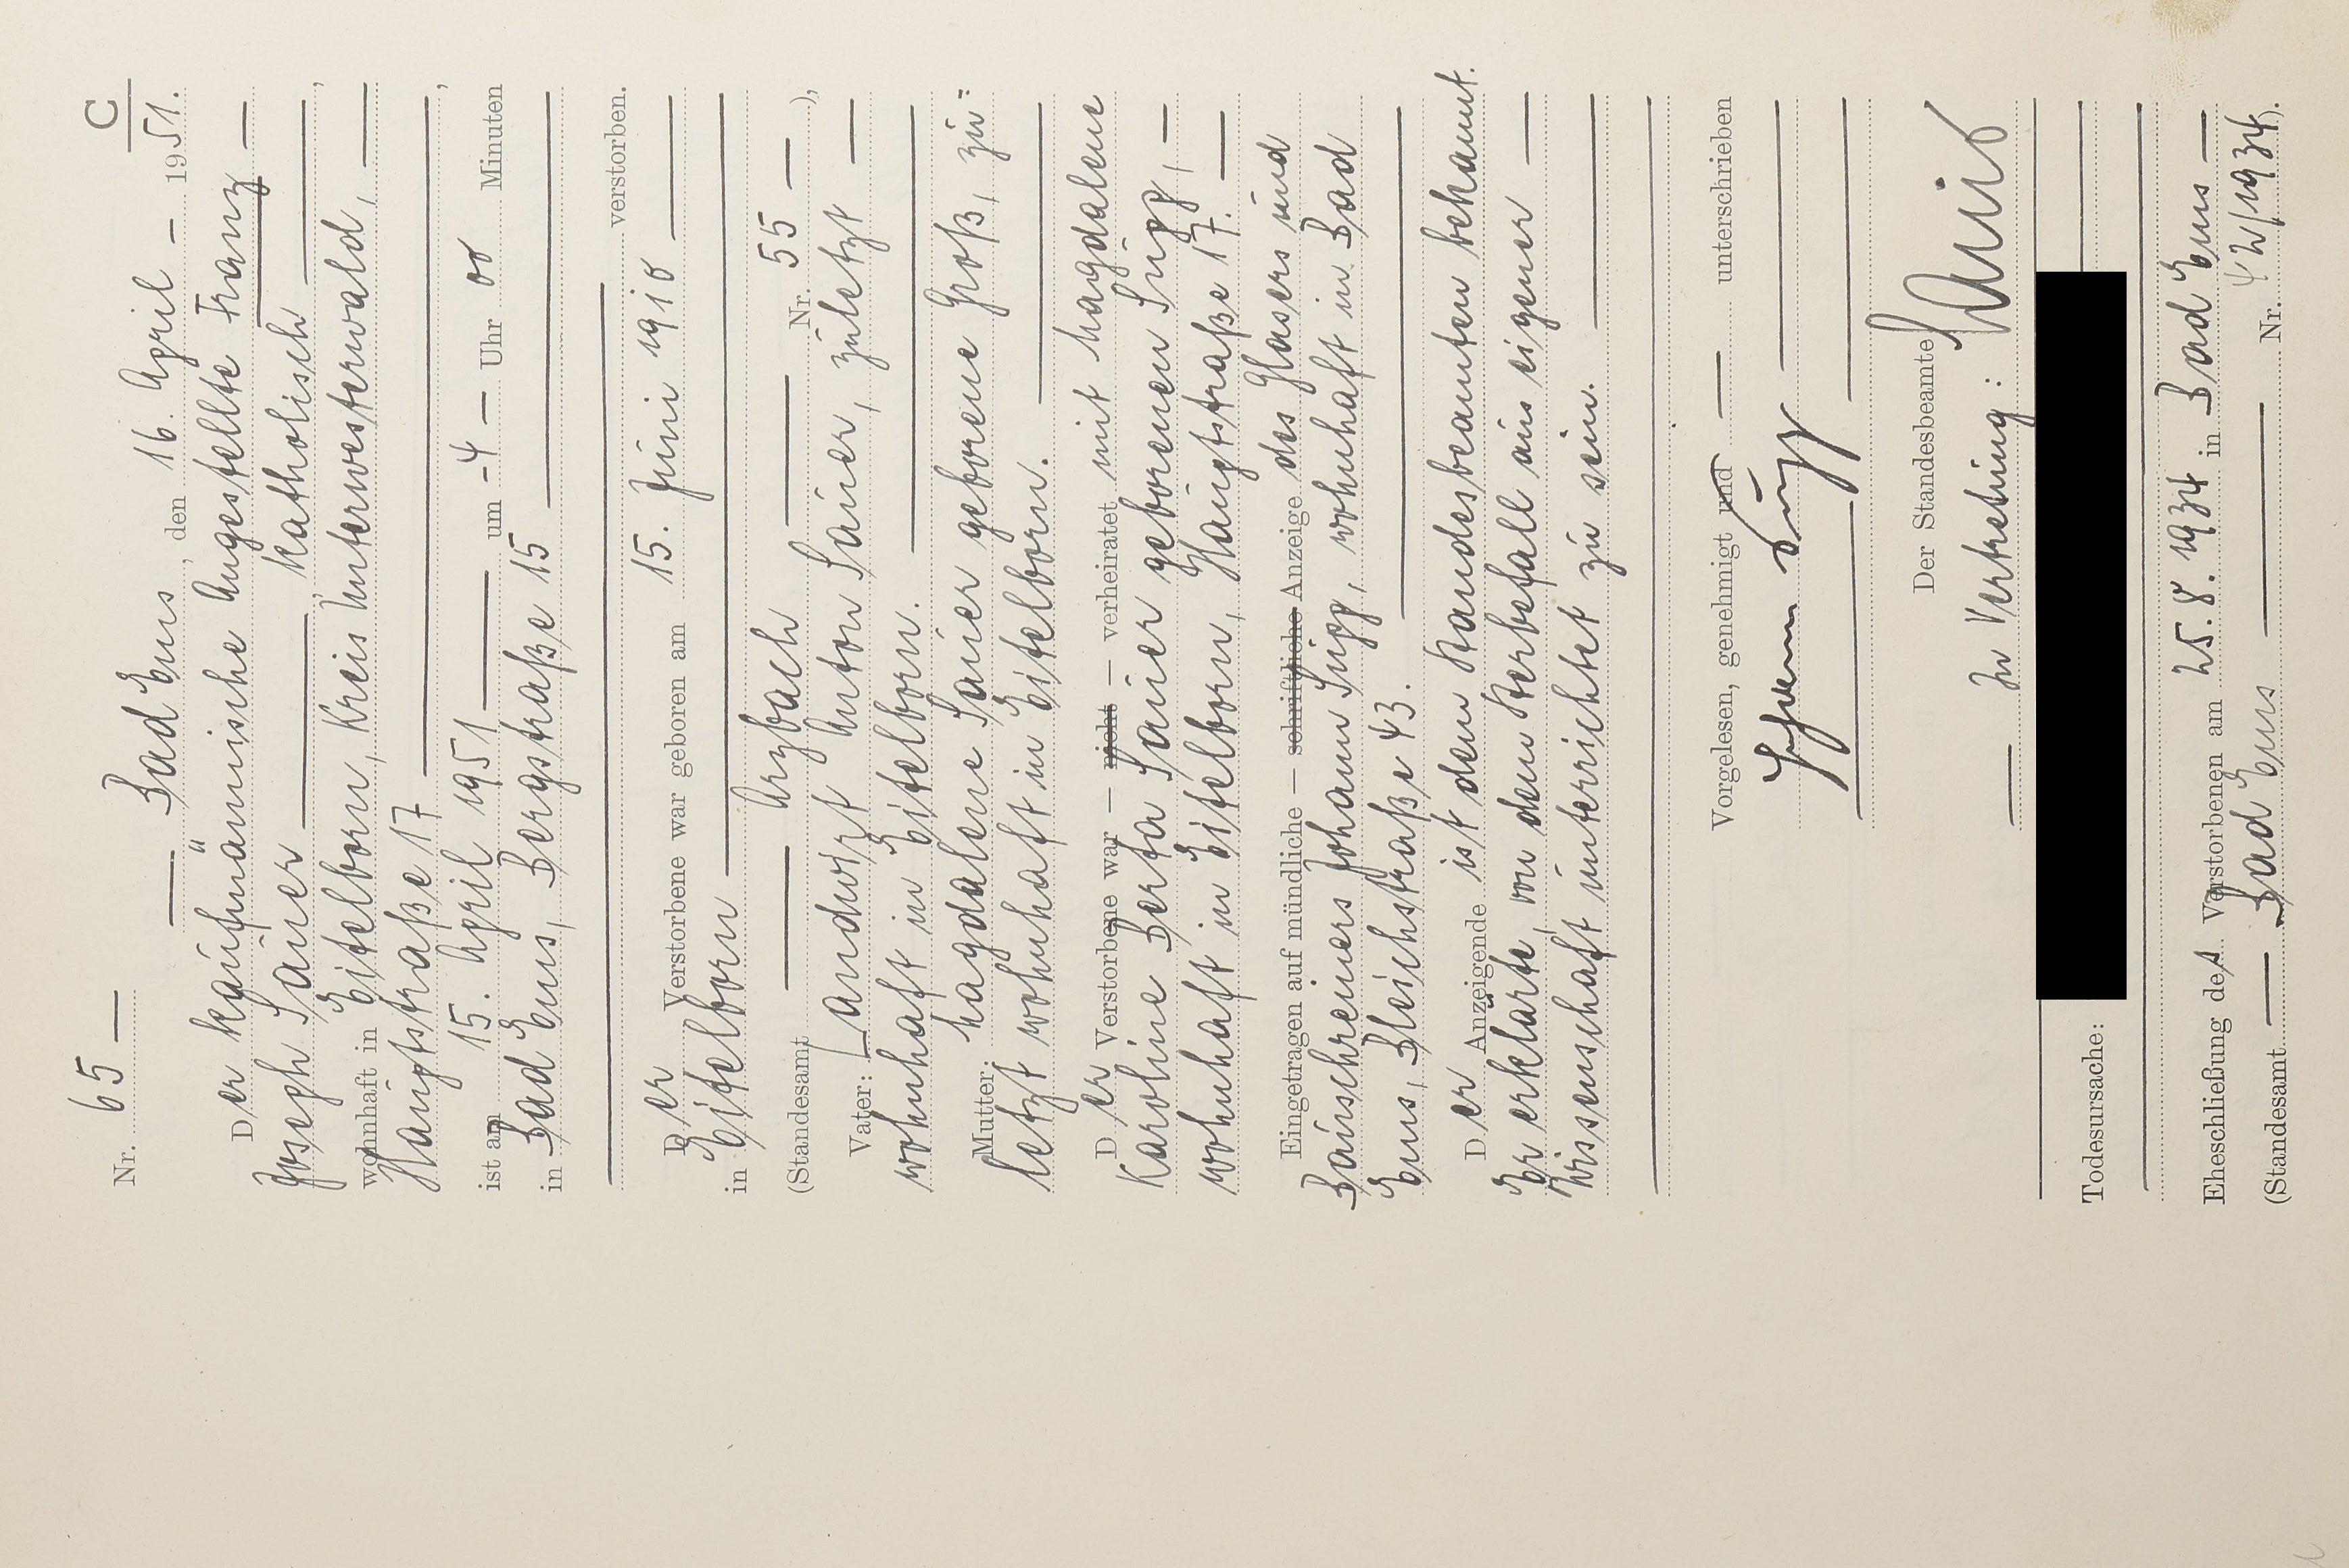 C
Nr. 65 —
— Bad Ems, den 16. April — 1951.
Der kaufmännische Angestellte Franz —
Joseph Sauer —, katholisch —,
wohnhaft in Eitelborn, Kreis Unterwesterwald, —
Hauptstraße 17 —,
ist am 15. April 1951 — um -4- Uhr 00 Minuten
in Bad Ems, Bergstraße 15 —
— verstorben.
Der Verstorbene war geboren am 15. Juni 1910 —
in Eitelborn —
(Standesamt — Arzbach — Nr. 55 —),
Vater: Landwirt Anton Sauer, zuletzt —
wohnhaft in Eitelborn. —
Mutter: Magdalene Sauer geborene Groß, zu=
letzt wohnhaft in Eitelborn. —
Der Verstorbene war — nicht — verheiratet mit Magdalene
Karoline Berta Sauer geborenen Supp, —
wohnhaft in Eitelborn, Hauptstraße 17. —
Eingetragen auf mündliche — schriftliche Anzeige des Glasers und
Bauschreiners Johann Supp, wohnhaft in Bad
Ems, Bleichstraße 43. —
Der Anzeigende ist dem Standesbeamten bekannt.
Er erklärte, von dem Sterbefall aus eigener —
Wissenschaft unterrichtet zu sein. —
Vorgelesen, genehmigt und — unterschrieben
Johann Supp —
Der Standesbeamte
— In Vertretung:
Todesursache:
Eheschließung des Verstorbenen am 25.8.1934 in Bad Ems —
(Standesamt — Bad Ems — Nr. 42/1934).